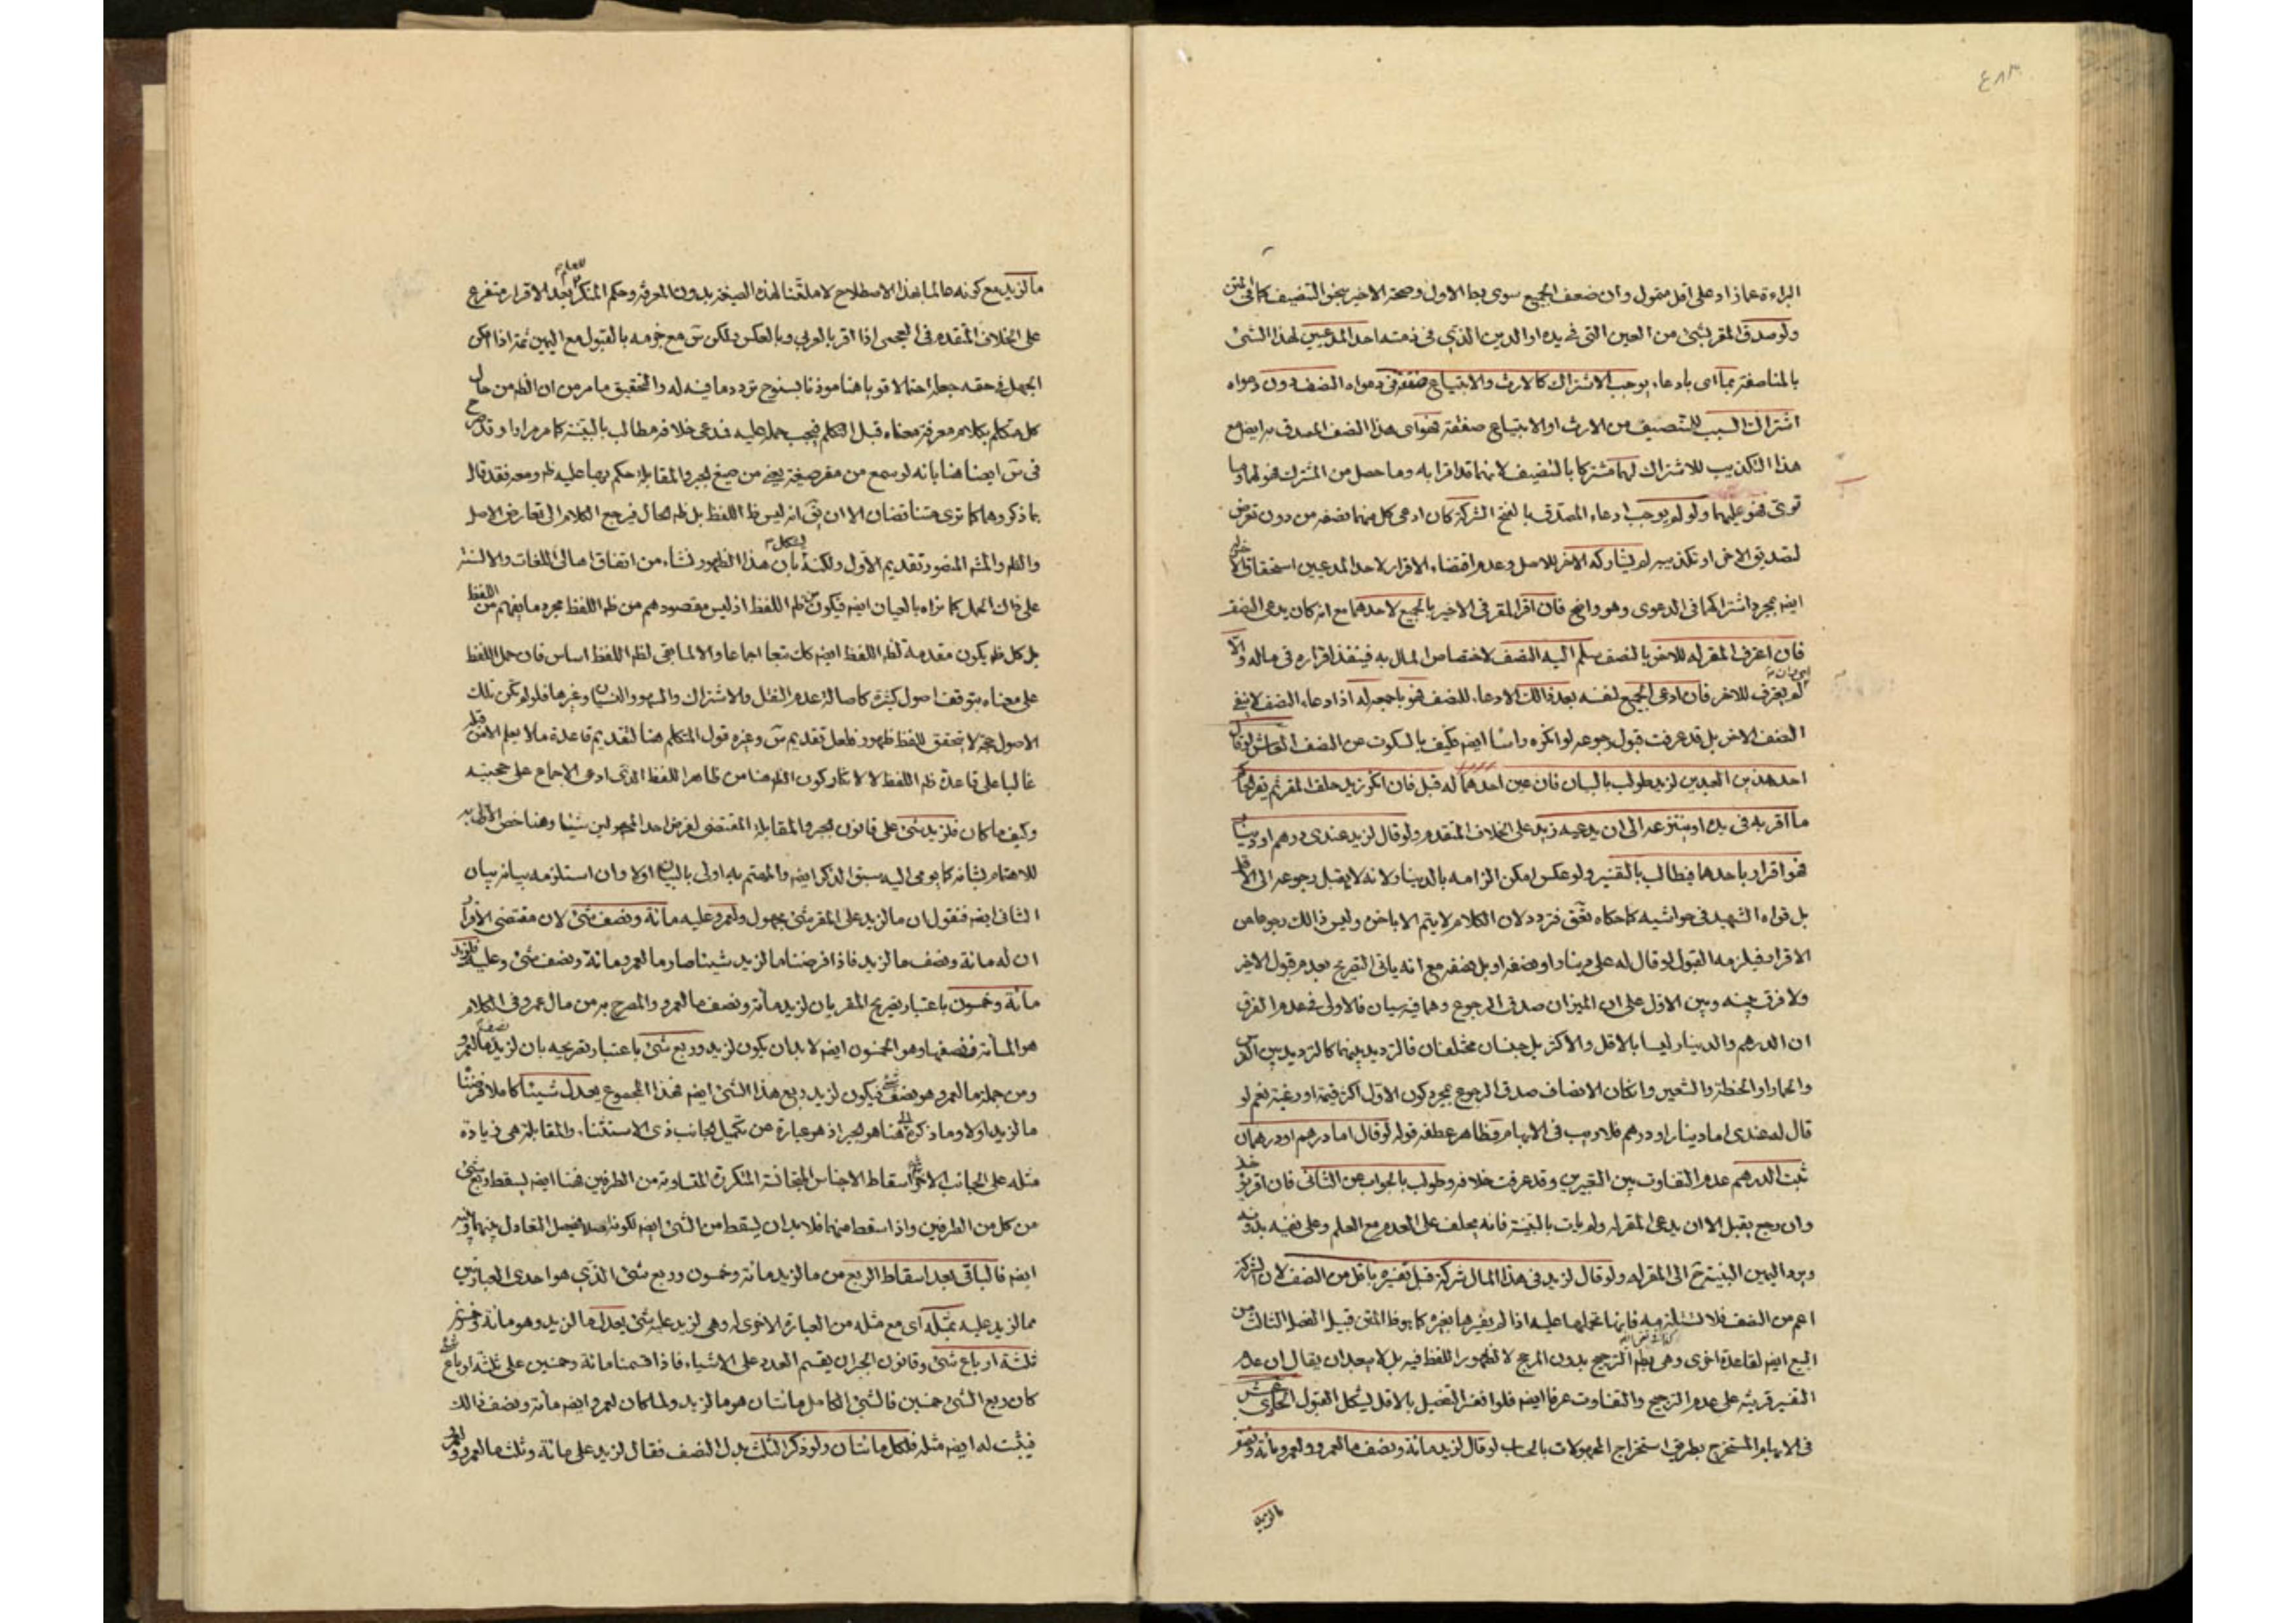 ٤٨٣
البراءة عما زاد على اقل متمول وان ضعف الجميع سوى يد الاول وصحة الاخير بحق التنصيف كما فى المتن
ولو صدق المقر بشئ من العين التى فى يده او الدين الذى فى ذمته احد المدعيين لهذا الشئ
بالمناصفة بما اى بادعاء يوجب الاشتراك كالارث والابتياع صفقة فى دعواه النصف دون دعواه
اشتراك السبب للتنصيف من الارث او الابتياع صفقة فهو اى هذا النصف المصدق به ايضا مع
هذا التكذيب للاشتراك لهما مشتركا بالتنصيف لانهما قد اقرا به وما حصل من المشترك فهو لهما وما
توى فهو عليهما ولو لم يوجب ادعاء المصدق بالفتح الشركة كان ادعى كل منهما نصفه من دون تعرض
لتصديق الاخر او تكذيبه لم يشاركه الاخر للاصل وعدم اقتضاء الاقرار لاحد المدعيين استحقاق
ايضا بمجرد اشتراكهما فى الدعوى وهو واضح فان اقر المقر فى الاخير بالجميع لاحدهما مع انه كان يدعى النصف
فان اعترف المقر له للاخر بالنصف سلم اليه النصف لاختصاص المال به فينفذ اقراره فى ماله والا
لم يعترف للاخر فان ادعى الجميع لنفسه بعد ذالك الادعاء للنصف فهو باجمعه له اذ ادعاء النصف لا ينفى
النصف الاخر بل قد عرفت قبول رجوعه لو انكره راسا ايضا فكيف بالسكوت عن النصف العاشر لو قال
احد هذين العبدين لزيد طولب بالبيان فان عين احدهما له قبل فان انكر زيد حلف المقر ثم يقر الحاكم
ما اقر به فى يده او ينتزعه الى ان يدعيه زيد على الخلاف المتقدم ولو قال لزيد عندى درهم او دينار
فهو اقرار باحدهما فيطالب بالتفسير ولو عكس امكن الزامه بالدينار لانه لا يقبل رجوعه الى الاقل
بل قواه الشهيد فى حواشيه كما حكاه المحقق فتردد لان الكلام لا يتم الا باخره وليس ذالك رجوعا عن
الاقرار فيلزمه القبول لو قال له على دينار او نصفه او بل نصفه مع انه ياتى التصريح بعدم قبول الاخير
ولا فرق بينه وبين الاول على ان الميزان صدق الرجوع وهما فيه سيان فالاولى فى عدم الفرق
ان الدرهم والدينار ليسا بالاقل والاكثر بل جنسان مختلفان فالترديد بينهما كالترديد بين الفرس
والحمار او الحنطة والشعير وانكان الانصاف صدق الرجوع بمجرد كون الاول اكثر قيمة او رغبة نعم لو
قال له عندى اما دينار او درهم فلا ريب فى الابهام وظاهر عطفه قوله لو قال اما درهم او درهمان
ثبت الدرهم عدم التفاوت بين التعبيرين وقد عرفت خلافه وطولب بالجواب عن الثانى فان اقر بخلافه
وان رجع يقبل الا ان يدعى المقر له ولم يات بالبينة فانه يحلف على العدم مع العلم وعلى نفيه بدونه
ويرد اليمين البتية ح الى المقر له ولو قال لزيد فى هذا المال شركة قبل تفسيره باقل من النصف لان الشركة
اعم من النصف فلا تستلزمه فانها تحملها عليه اذا لم يفسرها بغيره كما يوفظ المتن قبيل الفصل الثالث من
البيع ايضا لقاعدة اخرى وهى بطء الترجيح بدون المرجح لا لظهور اللفظ فيه بل لا يبعد ان يقال ان عدم
التفسير قرينة على عدم الترجيح والتفاوت عرفا ايضا فلو افسر التفضيل بالاقل ليشكل القبول الحادى عشر
فى الابهام المستخرج بطريق استخراج المجهولات بالحساب لو قال لزيد مائة ونصف ما لعمرو ولعمرو مائة ونصف
ما لزيد
ما لزيد مع كونه عالما بهذا الاصطلاح لا ملقنا لهذه الصيغة بدون المعرفة وحكم المنكر للعلم بعد الاقرار متفرع
على الخلاف المتقدم فى العجمى اذا اقر بالعربى وبالعكس ولكن س مع جزمه بالقبول مع اليمين ثمة اذا امكن
الجهل فى حقه جعله احتمالا قويا هنا موذنا بسنوح تردد ما فيه له والتحقيق ما مر من ان الظهر من حال
كل متكلم بكلام معرفة معناه قبل التكلم فيجب حمله عليه فمدعى خلافه مطالب بالبينة كما مر مرارا وقد صرح
فى س ايضا هنا بانه لو سمع من مقر صيغة يعنى من صيغ الجبر والمقابلة حكم بها عليه ظه ومعه فقد قال
بما ذكر وهما كما ترى متناقضان الا ان يق انه ليس ظه اللفظ بل ظه الحال فيرجع الكلام الى تعارض الاصل
والظه والمشه المنصور تقديم الاول ولكنه يشكل بان هذا الظهور نشاء من اتفاق اهالى اللغات والالسنة
على ذاك الحمل كما نراه بالعيان ايضا فيكون من ظه اللفظ اذ ليس مقصودهم من ظه اللفظ مجرد ما يفهم من اللفظ
بل كل ظه يكون مقدمة لظه اللفظ ايضا كان متبعا اجماعا والا لما بقى لظه اللفظ اساس فان حمل اللفظ
على معناه يتوقف اصول كثيرة كاصالة عدم النقل والاشتراك والسهو والنسيان وغيرها فلو لم تكن تلك
الاصول حجة لا يتحقق للفظ ظهور فلعل تقديم س وغيره قول المتكلم هنا لتقديم قاعدة ما لا يعلم الا من قبله
غالبا على قاعدة ظه اللفظ لا لانكار كون الظه هنا من ظاهر اللفظ الذى ادعى الاجماع على حجيته
وكيف ما كان فلزيد شئ على قانون الجبر والمقابلة المقتضى لفرض احد المجهولين شيئا وهنا خص الاول به
للاهتمام بشانه كما يومى اليه سبق الذكر ايضا والمهتم به اولى بالبيان اولا وان استلزمه بيانه بيان
الثانى ايضا فنقول ان ما لزيد على المقر شئ مجهول ولعمرو عليه مائة ونصف شئ لان مقتضى الاقرار
ان له مائة ونصف ما لزيد فاذا فرضنا ما لزيد شيئا صار ما لعمرو مائة ونصف شئ وعليه فلزيد
مائة وخمسون باعتبار تصريح المقر بان لزيد مائة ونصف ما لعمرو والمصرح به من مال عمرو فى الكلام
هو المائة فنصفها وهو الخمسون ايضا لا بد ان يكون لزيد وربع شئ باعتبار تصريحه بان لزيد نصف ما لعمرو
ومن جملة ما لعمرو هو نصف شئ فيكون لزيد ربع هذا الشئ ايضا فهذا المجموع يعدل شيئا كاملا فرضنا
ما لزيد اولا وما ذكره الى هنا هو الجبر اذ هو عبارة عن تكميل الجانب ذى الاستثناء والمقابلة هى زيادة
مثله على الجانب الاخر ثم اسقاط الاجناس المتجانسة المتكررة المتساوية من الطرفين فهنا ايضا يسقط ربع شئ
من كل من الطرفين واذا اسقط منهما فلا بد ان يسقط من الشئ ايضا لكونه اصلا فيحصل التعادل بينهما
ايضا فالباقى بعد اسقاط الربع من ما لزيد مائة وخمسون وربع شئ الذى هو احدى العبارتين
مما لزيد عليه بمثله اى مع مثله من العبارة الاخرى له وهى لزيد عليه شئ يعدل ما لزيد وهو مائة وخمسون
ثلثة ارباع شئ وقانون الجبر ان يقسم العدد على الاشياء فاذا قسمنا مائة وخمسين على ثلثة ارباع شئ
كان ربع الشئ خمسين فالشئ الكامل مائتان هو ما لزيد ولما كان لعمرو ايضا مائة ونصف ذالك
فيثبت له ايضا مثله فلكل مائتان ولو ذكر الثلث بدل النصف فقال لزيد على مائة وثلث ما لعمرو ولعمرو